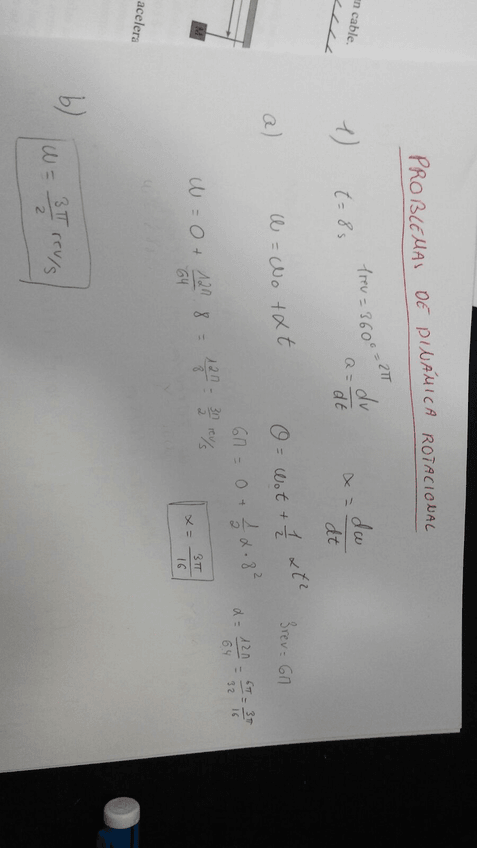 n cable.
acelera
M
PROBLEMAS DE DINÁMICA ROTACIONAL
1) t = 8s 1rev = 360° = 2π a = dv/dt α = dω/dt
a) ω = ω₀ + αt θ = ω₀t + 1/2 αt² 3rev = 6π
6π = 0 + 1/2 α · 8² α = 12π/64 = 6π/32 = 3π/16
ω = 0 + 12π/64 8 = 12π/8 = 3π/2 rev/s α = 3π/16
b)
ω = 3π/2 rev/s